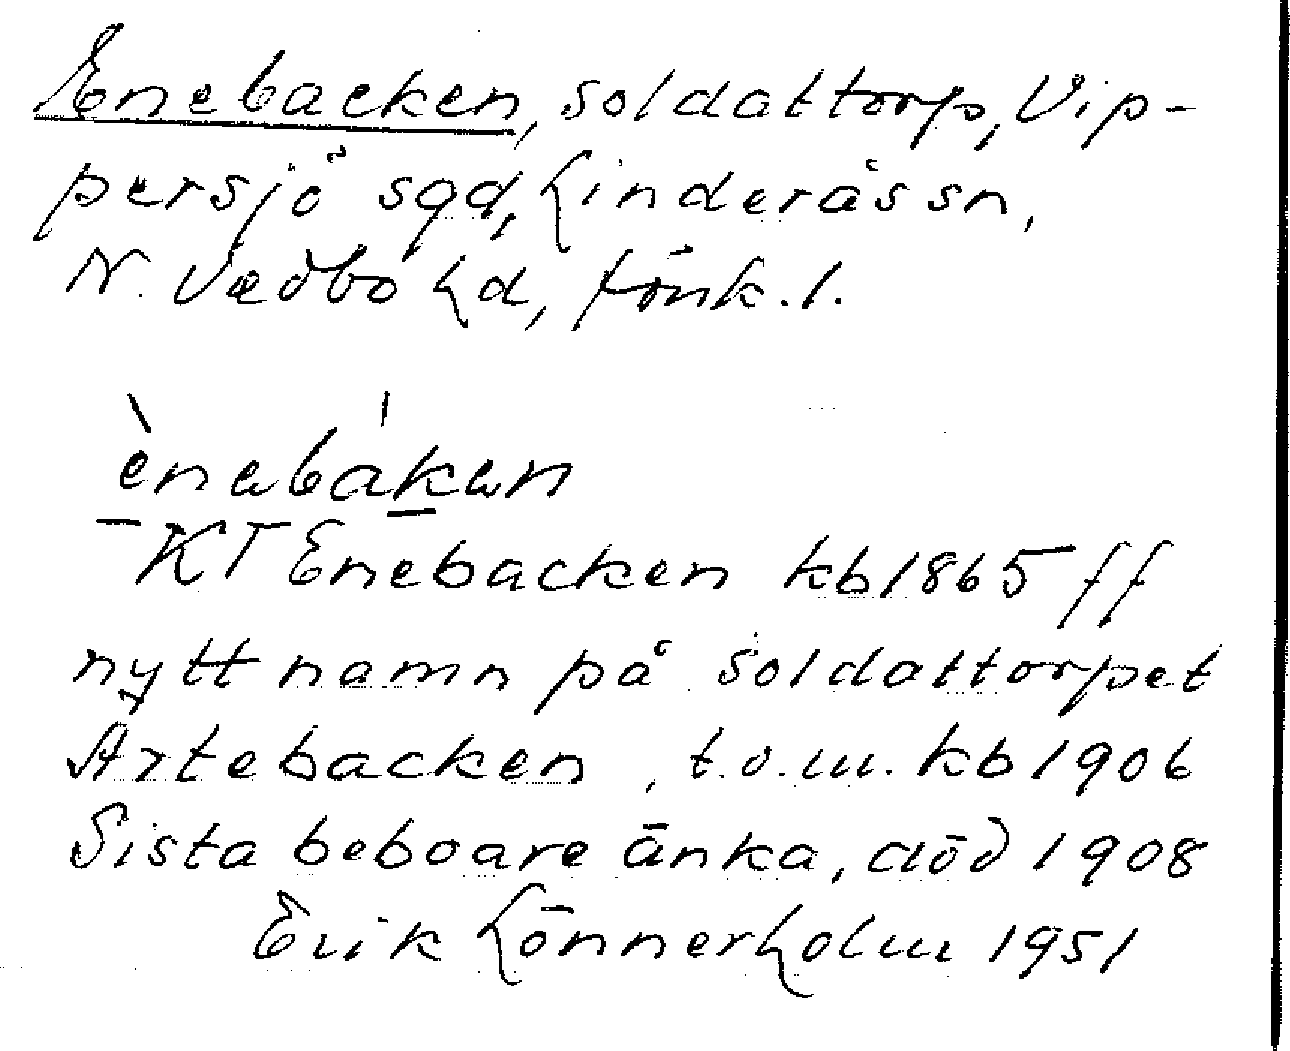 Enebacken, soldattorp, Vip-
persjö sgd, Linderås sn,
N. Vedbo hd, Jönk. l.
ènebáken
KT Enebacken kb 1865 ff
nytt namn på soldattorpet
Ärtebacken, t.o.m. kb 1906
Sista beboare änka, död 1908
Erik Lönnerholm 1951